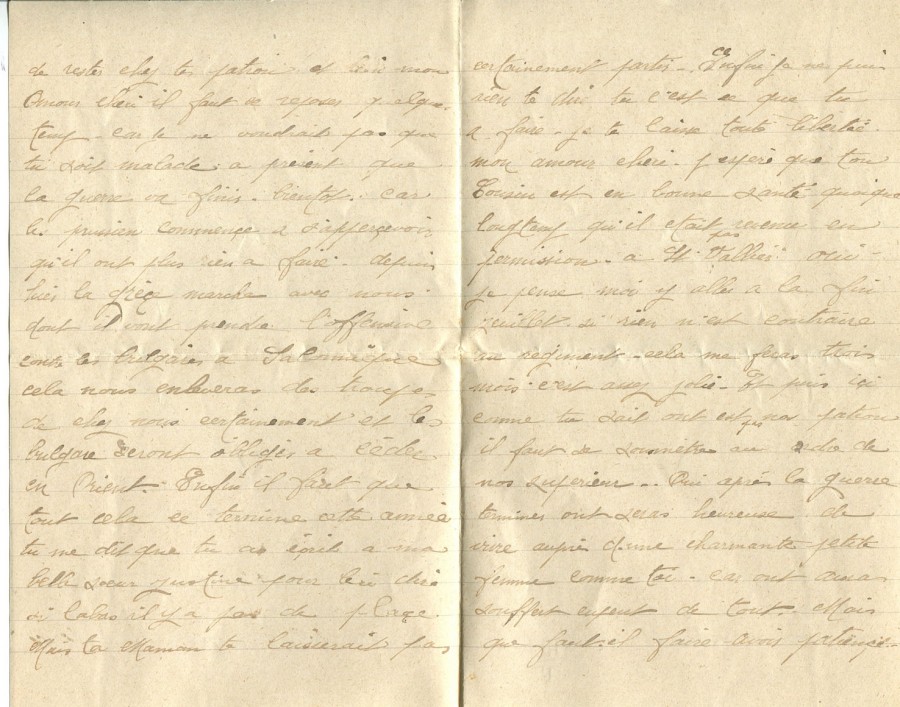 de restes chez tes patron et bien mon
Amour chéri il faut se reposes quelque
temp. car je ne voudrait pas que
tu soit malade a présent que
la guerre va finis. bientot. car
le prussien commençe a s'apperçevoir
qu'il ont plus rien a faire. depuis
hiers la Grèçe marche avec nous
dont il vont prendre l'offensive
contre les bulgares a Salonique
cela nous enleveras des troupe
de chez nous certainement et les
bulgare seront obligés a cèder
en Orient. Enfin il faut que
tout cela se termine cette année
tu me dit que tu as écrit a ma
belle sœur Justine pour lui dire
si labas il y a pas de plaçe.
Mais ta Maman te laisserait pas
certainement partir. Enfin ce je ne puis
rien te dire tu c'est ce que tu
a faire. je te laisse toute liberté.
mon amour cheri. j'espére que ton
Cousin est en bonne santé quoique
longtemp qu'il etait pas revenu en
permission. a St Vallier. oui
je pense moi y allés a la fin
juillet. si rien n'est contraire
au régiment. cela me feras trois
mois c'est assez jolie. Et puis içi
comme tu sait ont est pas nos patron
il faut se soumètre au ordre de
nos superieur. Puis aprés la guerre
termines ont seras heureuse de
vivre auprè d'une charmante petite
femme comme toi. car ont auras
souffert enfent de tout. Mais
que faut-il faire avoir patiençe.